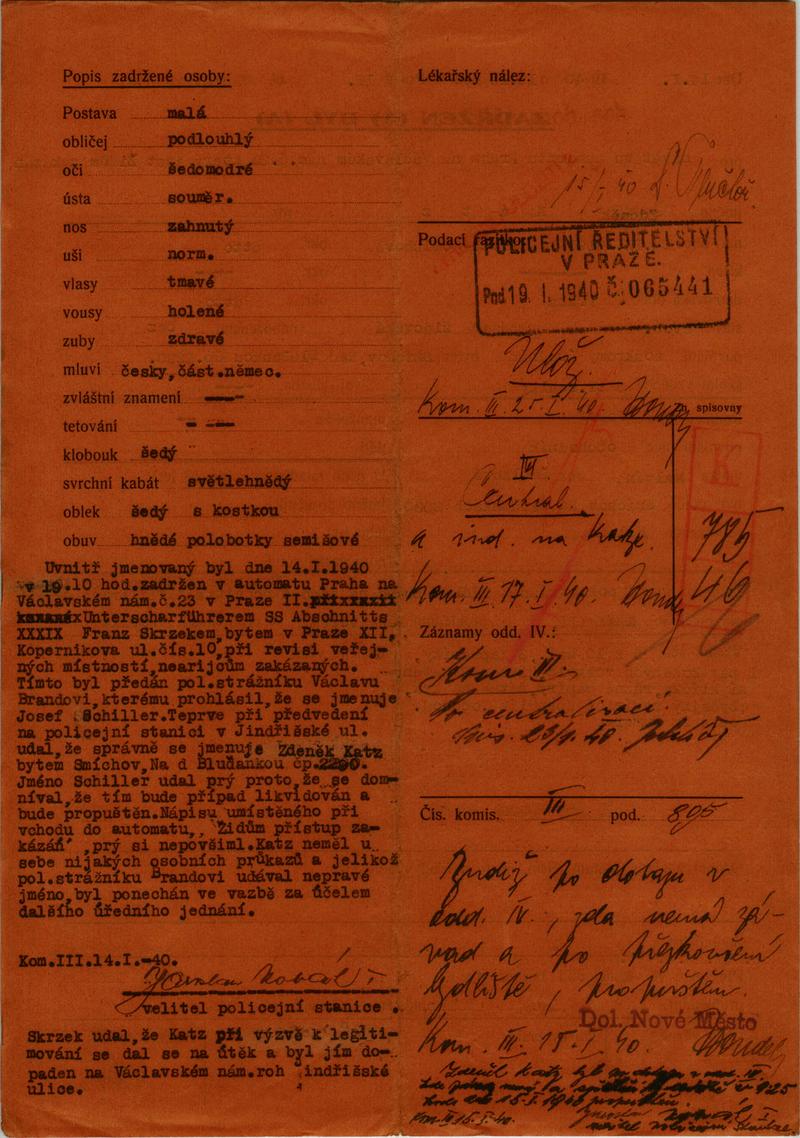 Popis zadržené osoby:
Postava malá
obličej podlouhlý
oči šedomodré
ústa souměr.
nos zahnutý
uši norm.
vlasy tmavé
vousy holené
zuby zdravé
mluví česky,část.němec.
zvláštní znamení
tetování
klobouk šedý
svrchní kabát světlehnědý
oblek šedý s kostkou
obuv hnědé polobotky semišové
Uvnitř jmenovaný byl dne 14.I.1940
v 19.10 hod.zadržen v automatu Praha na
Václavském nám.č.23 v Praze II.
Unterscharführerem SS Abschnitts
XXXIX Franz Skrzekem,bytem v Praze XII,
Kopernikova ul.čís.10,při revisi veřej-
ných místností,nearijcům zakázaných.
Tímto byl předán pol.strážníku Václavu
Brandovi,kterému prohlásil,že se jmenuje
Josef Schiller.Teprve při předvedení
na policejní stanici v Jindřišské ul.
udal,že správně se jmenuje Zdeněk Katz
bytem Smíchov,Na d Bluďankou čp.2290.
Jméno Schiller udal prý proto,že se dom-
níval,že tím bude případ likvidován a
bude propuštěn.Nápisu umístěného při
vchodu do automatu,, Židům přístup za-
kázán",prý si nepovšiml.Katz neměl u
sebe nijakých osobních průkazů a jelikož
pol.strážníku Brandovi udával nepravé
jméno,byl ponechán ve vazbě za účelem
dalšího úředního jednání.
Kom.III.14.I.-40.
velitel policejní stanice.
Skrzek udal,že Katz při výzvě k legiti-
mování se dal se na útěk a byl jím do-
paden na Václavském nám.roh Jindřišské
ulice.
Lékařský nález:
15/I 40
Podací razítko:
POLICEJNÍ ŘEDITELSTVÍ
V PRAZE.
Pod 19. I. 1940 č. 065441
Ulož.
Kom. III. 25. I. 40.
Zn. spisovny
K
III
Central
a ind. na Katz.
785
Kom. III. 17. I. 40.
46
Záznamy odd. IV.:
Kom. III.
Po centralisaci.
Čís. komis. III pod. 895
Budiž po dotazu v
odd. IV., zda nemá zá-
vad a po přezkoušení
bydliště, propuštěn.
Dol. Nové Město
Kom. III. 15. I. 40.
Kom. III 15. I. 40.